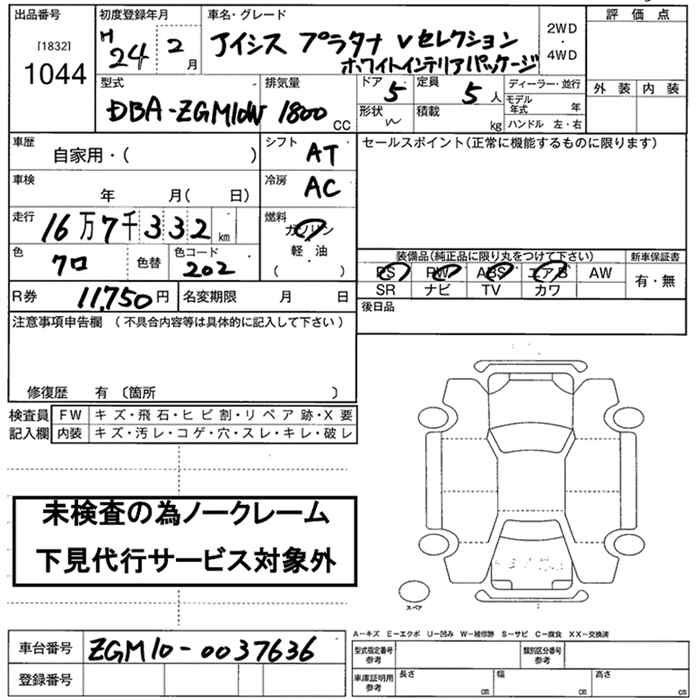 出品番号
[1832]
1044
初度登録年月
H 24 2 月
車名・グレード
アイシス プラタナ Vセレクション
ホワイトインテリアパッケージ
2WD
・
4WD
評価点
外装 内装
型式
DBA-ZGM10W
排気量
1800 CC
ドア 5
定員 5 人
形状
積載 kg
ディーラー・並行
モデル年式 年
ハンドル 左・右
車歴
自家用・( )
シフト AT
セールスポイント(正常に機能するものに限ります)
車検
年 月( 日)
冷房 AC
走行 16万7千332 km
燃料
ガソリン
軽・油
( )
色 クロ
色替
色コード 202
装備品(純正品に限り丸をつけて下さい)
新車保証書
PS PW ABS エアB AW
SR ナビ TV カワ
有・無
R券 11,750円
名変期限 月 日
後日品
注意事項申告欄 (不具合内容等は具体的に記入して下さい)
修復歴 有 〔箇所 〕
検査員記入欄
FW キズ・飛石・ヒビ割・リペア跡・X要
内装 キズ・汚レ・コゲ・穴・スレ・キレ・破レ
未検査の為ノークレーム
下見代行サービス対象外
スペア
A-キズ E-エクボ U-凹み W-補修跡 S-サビ C-腐食 XX-交換済
車台番号 ZGM10-0037636
登録番号
型式指定番号参考
類別区分番号参考
車庫証明用参考
長さ cm 幅 cm 高さ cm